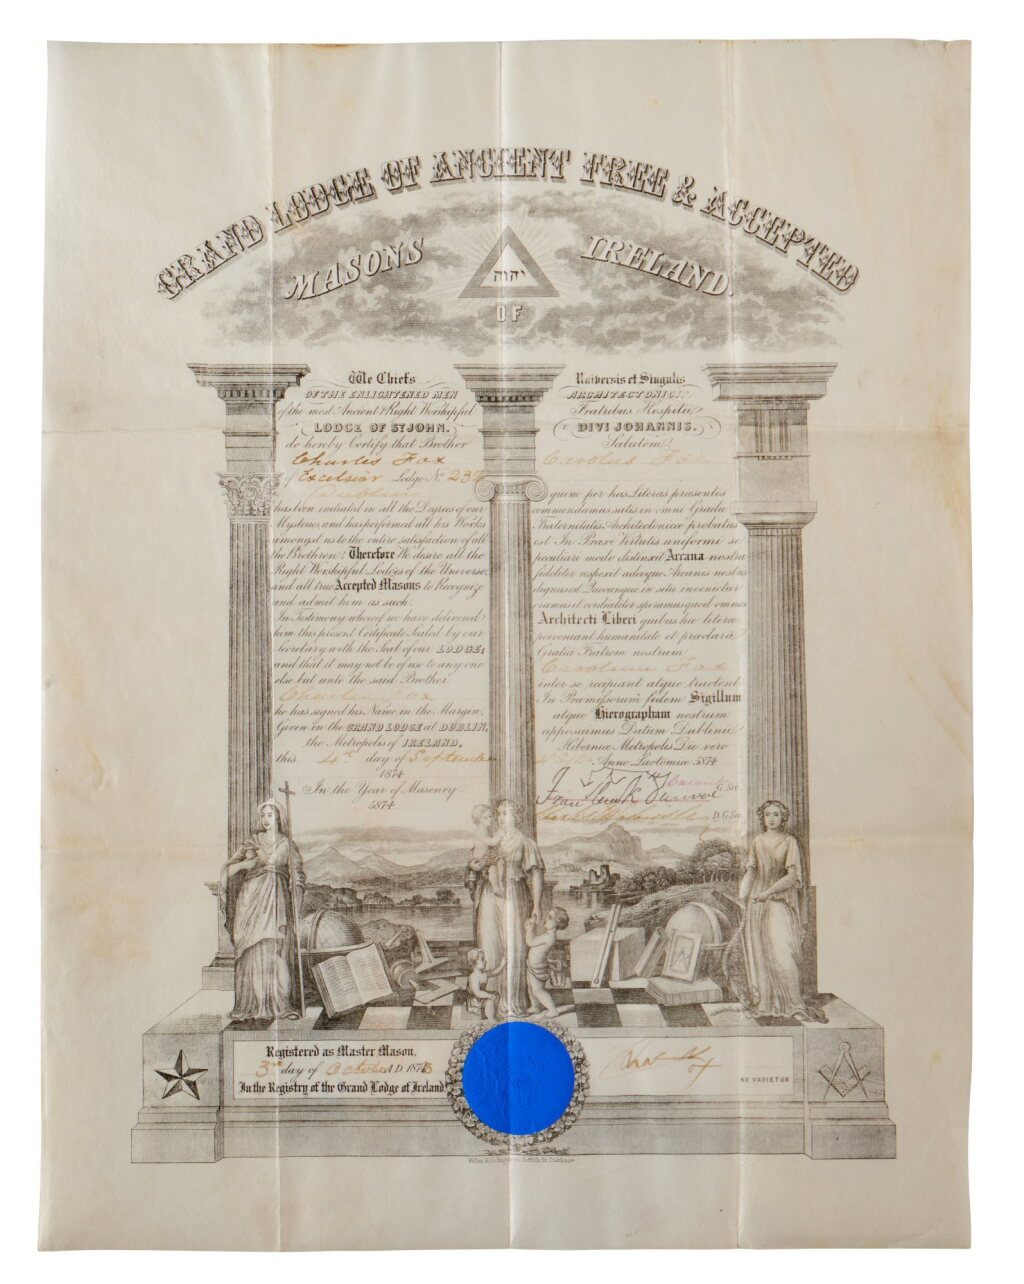 GRAND LODGE OF ANCIENT FREE & ACCEPTED
MASONS IRELAND.
יהוה
OF
We Chiefs
OF THE ENLIGHTENED MEN
of the most Ancient & Right Worshipful
LODGE OF ST JOHN.
do hereby Certify that Brother
Charles Fox
of Excelsior Lodge No.
Dublin
has been initiated in all the Degrees of our
Mysteries, and has performed all his Works
amongst us to the entire satisfaction of all
the Brethren: Therefore We desire all the
Right Worshipful Lodges of the Universe,
and all true Accepted Masons to Recognize
and admit him as such.
In Testimony whereof we have delivered
him this present Certificate Sealed by our
Secretary with the Seal of our LODGE;
and that it may not be of use to any one
else but unto the said Brother
Charles Fox
he has signed his Name in the Margin.
Given in the GRAND LODGE at DUBLIN,
the Metropolis of IRELAND,
this 4th day of September
1874
In the Year of Masonry
5874
Universis et Singulis
ARCHITECTONICIS
Fratribus Hospitii
DIVI JOHANNIS.
Salutem!
Carolus Fox
quem per has Literas praesentes
commendamus satis in omni Gradu
Fraternitatis Architectonicae probatus
est In Pauci Virtutis uniformi se
peculiari modo distinxit Arcana nostra
fideliter respexit adeoque Arcanis nostris
dignus est Quocunque in situ invenietur
oramus et cordialiter speramus quod omnes
Architecti Liberi quibus hae literae
perveniant humanitate et praeclara
Gratia Fratrem nostrum
Carolum Fox
inter se recipiant atque tractent
In Praemissorum fidem Sigillum
atque Hierographam nostrum
apposuimus Datum Dublinii
Hiberniae Metropolis Die vero
Anno Laotomiae 5874
G. Sec.
D. G. Sec.
Registered as Master Mason,
3rd day of October A.D. 187
In the Registry of the Grand Lodge of Ireland.
Chas Fox
NE VARIETUR